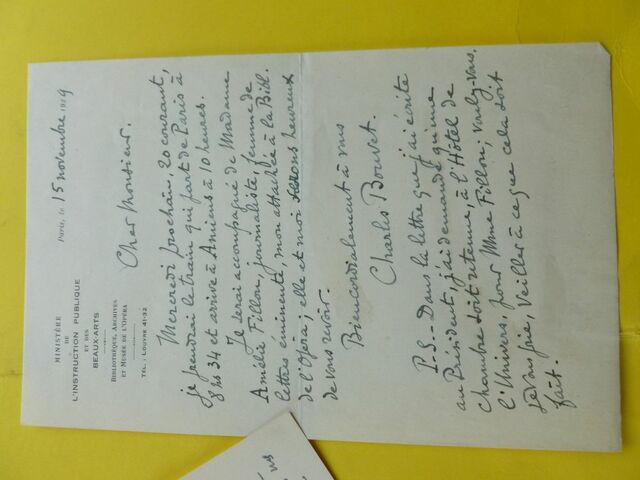 MINISTÈRE
DE
L'INSTRUCTION PUBLIQUE
ET DES
BEAUX-ARTS
BIBLIOTHÈQUE, ARCHIVES
ET MUSÉE DE L'OPÉRA
TÉL : LOUVRE 41-32
Paris, le 15 novembre 1919
Cher Monsieur.
Mercredi prochain, 20 courant,
je prendrai le train qui part de Paris à
8 hs 34 et arrive à Amiens à 10 heures.
Je serai accompagné de Madame
Amélie Fillon, journaliste, femme de
lettres éminente, mon attachée à la Bibl.
de l'Opéra; elle et moi serons heureux
de vous revoir.
Bien cordialement à vous
Charles Bouvet.
P.S.- Dans la lettre que j'ai écrite
au Président, j'ai demandé qu'une
chambre soit retenue, à l'Hôtel de
l'Univers, pour Mme Fillon; voulez-vous,
je vous prie, veiller à ce que cela soit
fait.